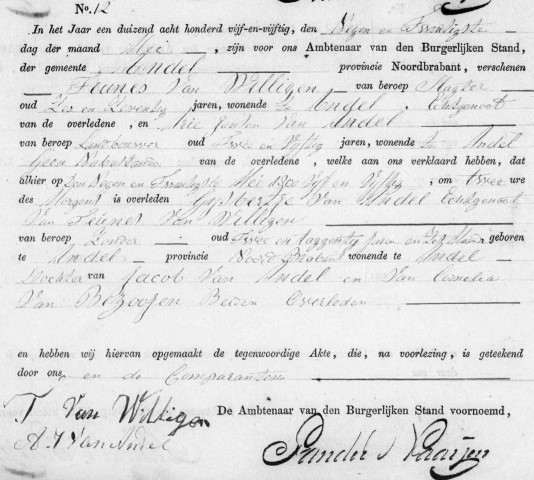 No. 12
In het Jaar een duizend acht honderd vijf-en-vijftig, den Negen en Twentigste
dag der maand Mei, zijn voor ons Ambtenaar van den Burgerlijken Stand,
der gemeente Andel provincie Noordbrabant, verschenen
Teunes Van Willigen van beroep
oud Zes en Zeventig jaren, wonende te Andel, Echtgenoot
van de overledene, en Arie Janten Van Andel
van beroep Landbouwer oud Twee en Vijftig jaren, wonende te Andel
Geen Nabestaande van de overledene, welke aan ons verklaard hebben, dat
alhier op Den Negen en Twentigste Mei 1800 Vijf en Vijftig, om twee ure
des Morgens is overleden Gijsbertje Van Andel Echtgenoot
Van Teunes Van Willigen
van beroep Zonder oud Twee en taggentig Jaren en Zes Maanden geboren
te Andel provincie Noord Brabant wonende te Andel
Dochter van Jacob Van Andel en Van Cornelia
Van Bozooijen Beiden Overleden
en hebben wij hiervan opgemaakt de tegenwoordige Akte, die, na voorlezing, is geteekend
door ons en de Comparanten
De Ambtenaar van den Burgerlijken Stand voornoemd,
T Van Willigen
A. J Van Andel